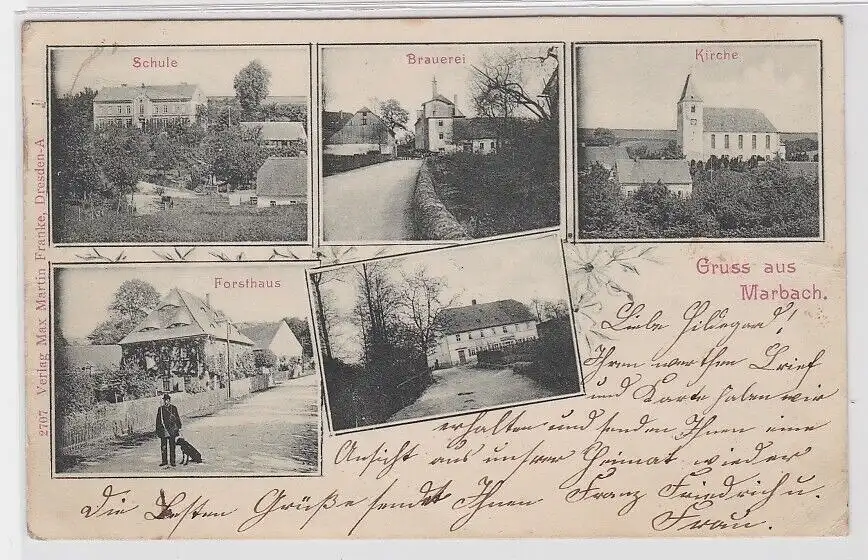 Schule
Brauerei
Kirche
Forsthaus
Gruss aus
Marbach.
2707 Verlag Max Martin Franke, Dresden-A
Liebe Hildegard!
Ihren werthen Brief
und Karte haben wir
erhalten und senden Ihnen eine
Ansicht aus unsrer Heimat wieder
Die Besten Grüße sendet Ihnen Franz Friedrich u.
Frau.